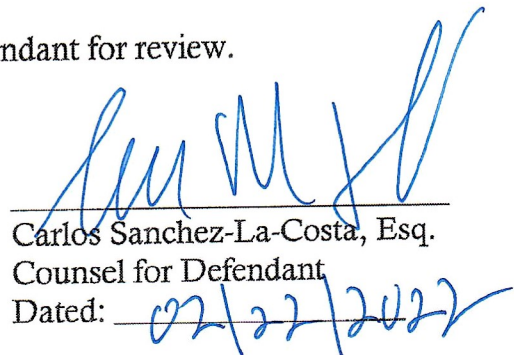 ndant for review.
Carlos Sanchez-La-Costa, Esq.
Counsel for Defendant
Dated: 02/22/2022